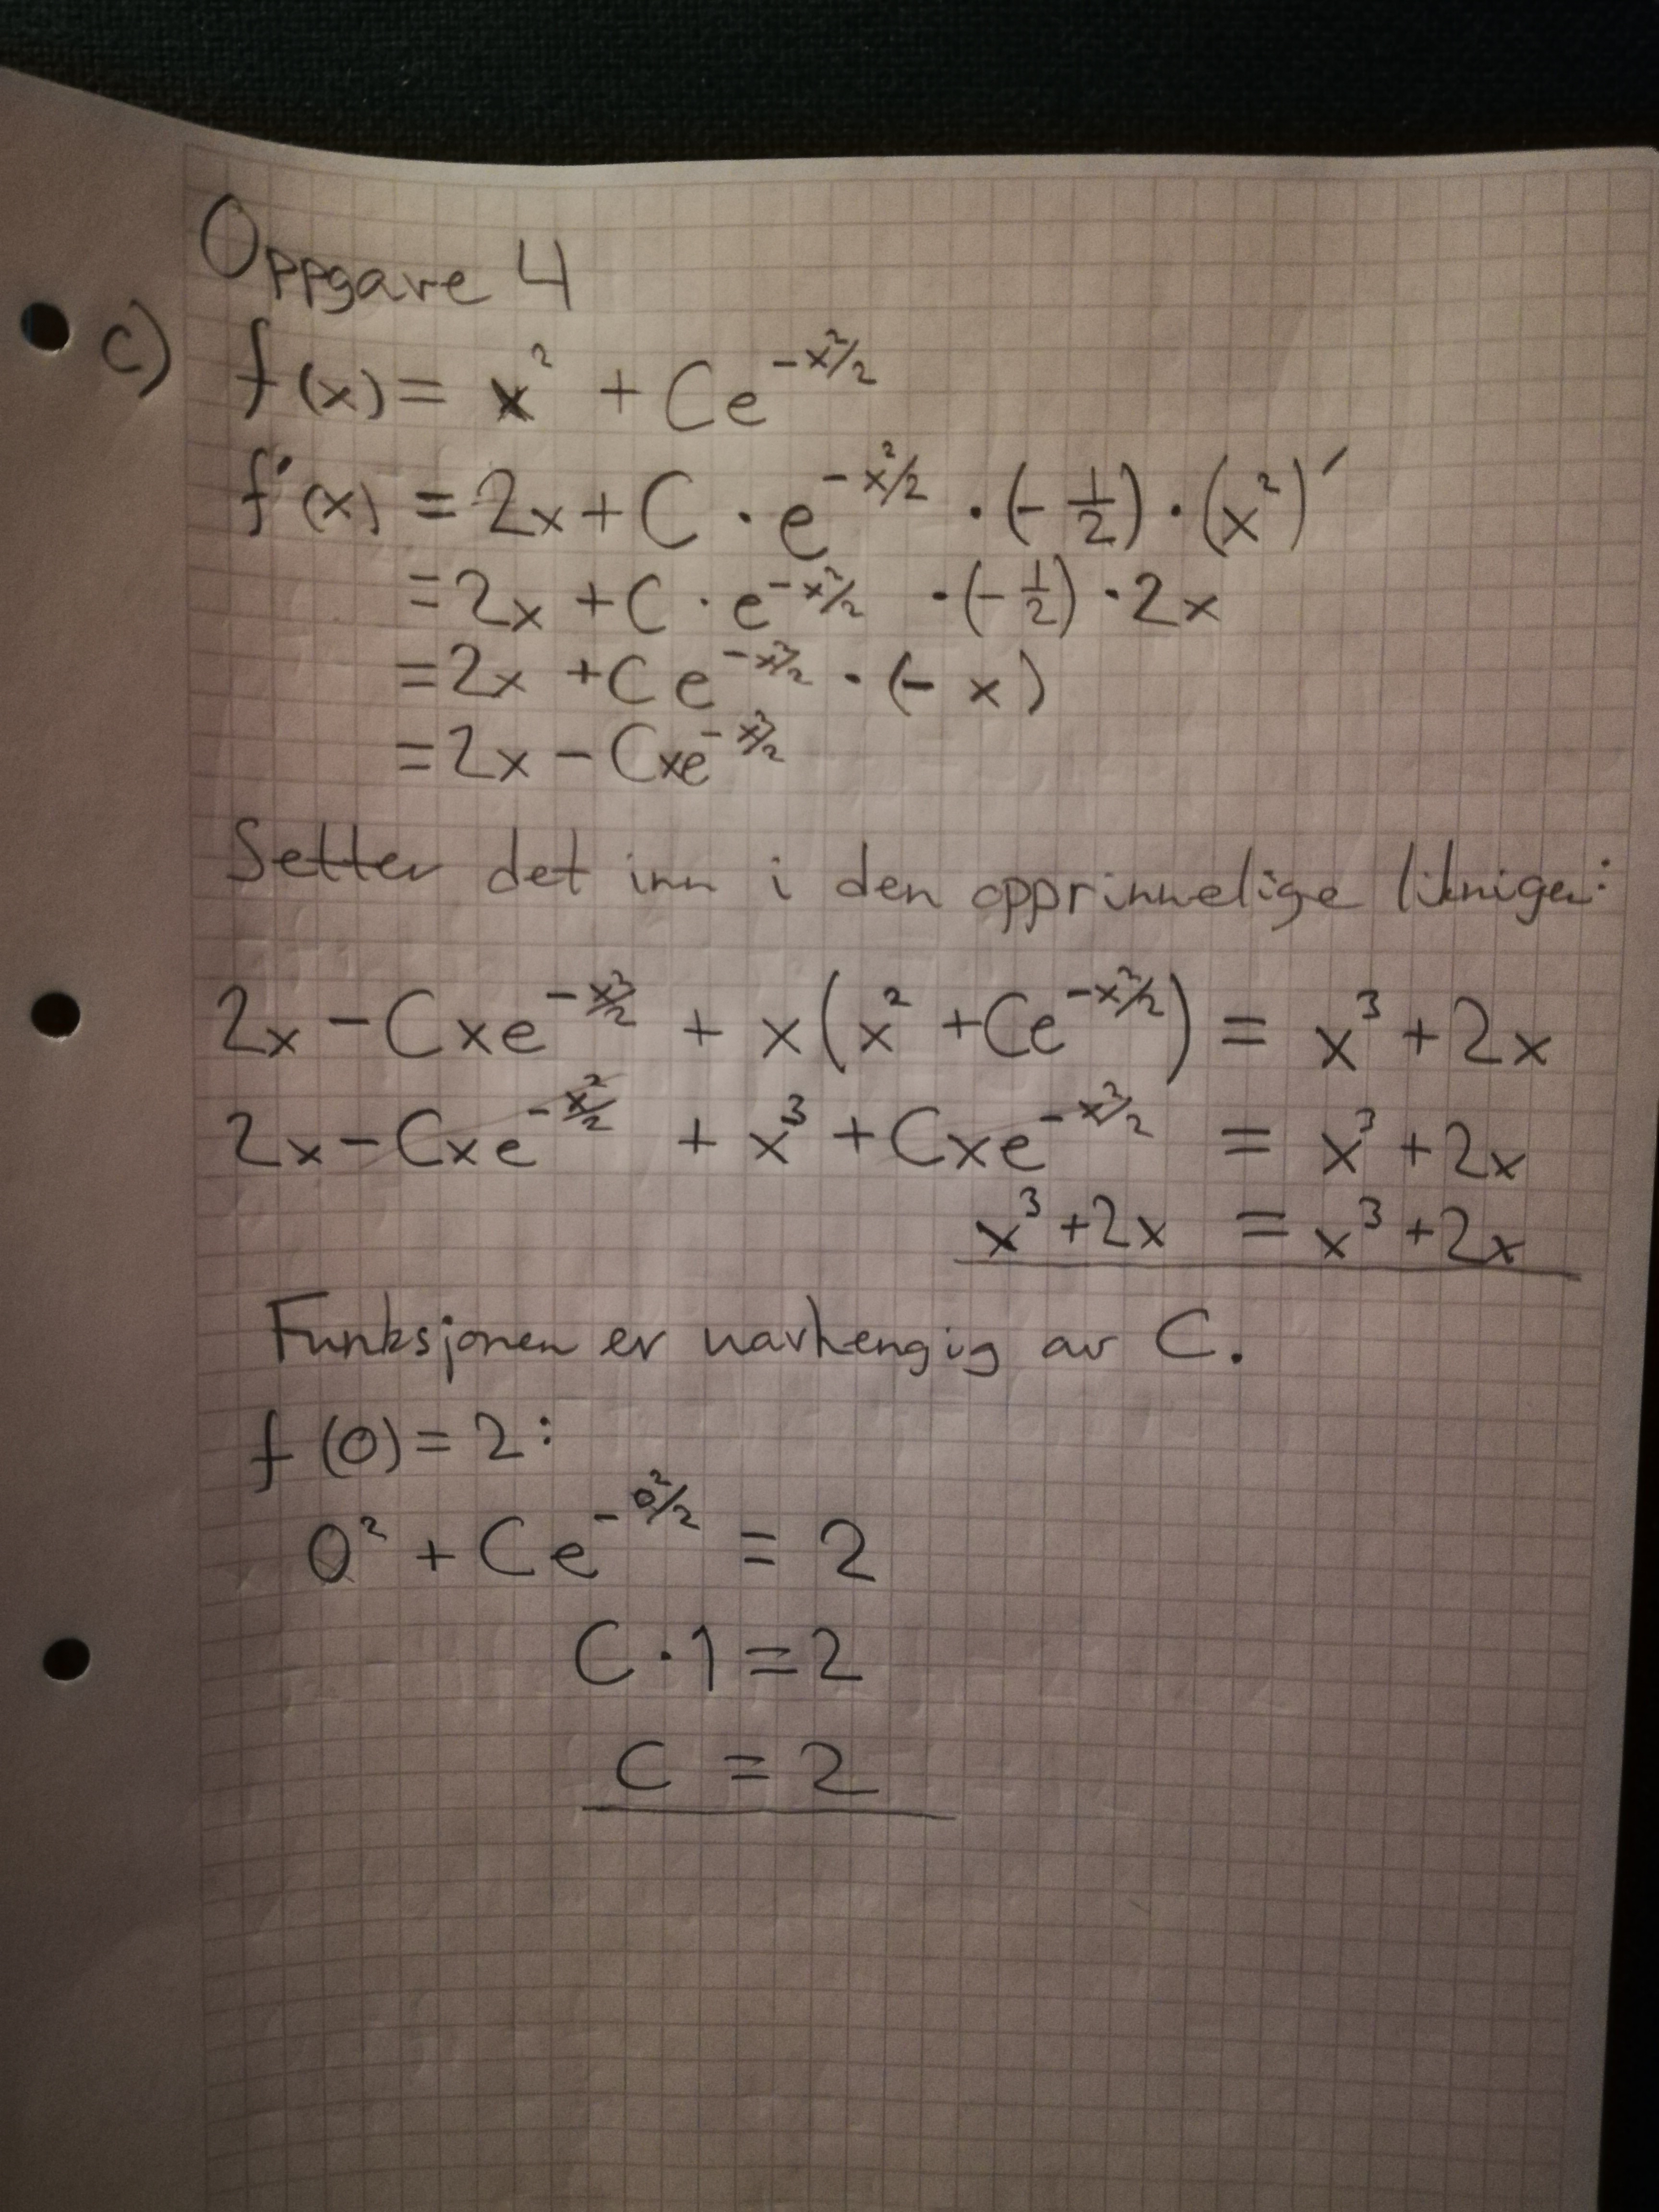 Oppgave 4
c) f(x) = x² + Ce^(-x²/2)
f'(x) = 2x + C · e^(-x²/2) · (-1/2) · (x²)'
= 2x + C · e^(-x²/2) · (-1/2) · 2x
= 2x + Ce^(-x²/2) · (-x)
= 2x - Cxe^(-x²/2)
Setter det inn i den opprinnelige likningen:
2x - Cxe^(-x²/2) + x(x² + Ce^(-x²/2)) = x³ + 2x
2x - Cxe^(-x²/2) + x³ + Cxe^(-x²/2) = x³ + 2x
x³ + 2x = x³ + 2x
Funksjonen er uavhengig av C.
f(0) = 2:
0² + Ce^(-0²/2) = 2
C · 1 = 2
C = 2